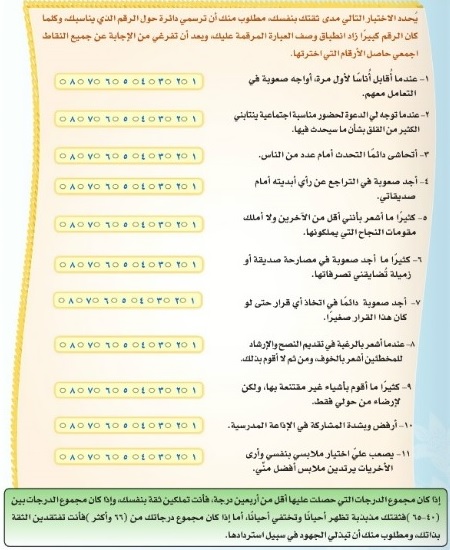 يُحدد الاختبار التالي مدى ثقتك بنفسك، مطلوب منك أن ترسمي دائرة حول الرقم الذي يناسبك، وكلما
كان الرقم كبيرًا زاد انطباق وصف العبارة المرقمة عليك، وبعد أن تفرغي من الإجابة عن جميع النقاط
اجمعي حاصل الأرقام التي اخترتها.
١- عندما أُقابل أُناسًا لأول مرة، أواجه صعوبة في
التعامل معهم.
١ ٢ ٣ ٤ ٥ ٦ ٧ ٨
٢- عندما توجه لي الدعوة لحضور مناسبة اجتماعية ينتابني
الكثير من القلق بشأن ما سيحدث فيها.
١ ٢ ٣ ٤ ٥ ٦ ٧ ٨
٣- أتحاشى دائمًا التحدث أمام عدد من الناس.
١ ٢ ٣ ٤ ٥ ٦ ٧ ٨
٤- أجد صعوبة في التراجع عن رأي أبديته أمام
صديقاتي.
١ ٢ ٣ ٤ ٥ ٦ ٧ ٨
٥- كثيرًا ما أشعر بأنني أقل من الآخرين ولا أملك
مقومات النجاح التي يملكونها.
١ ٢ ٣ ٤ ٥ ٦ ٧ ٨
٦- كثيرًا ما أجد صعوبة في مصارحة صديقة أو
زميلة تُضايقني تصرفاتها.
١ ٢ ٣ ٤ ٥ ٦ ٧ ٨
٧- أجد صعوبة دائمًا في اتخاذ أي قرار حتى لو
كان هذا القرار صغيرًا.
١ ٢ ٣ ٤ ٥ ٦ ٧ ٨
٨- عندما أشعر بالرغبة في تقديم النصح والإرشاد
للمخطئين أشعر بالخوف، ومن ثم لا أقوم بذلك.
١ ٢ ٣ ٤ ٥ ٦ ٧ ٨
٩- كثيرًا ما أقوم بأشياء غير مقتنعة بها، ولكن
لإرضاء من حولي فقط.
١ ٢ ٣ ٤ ٥ ٦ ٧ ٨
١٠- أرفض وبشدة المشاركة في الإذاعة المدرسية.
١ ٢ ٣ ٤ ٥ ٦ ٧ ٨
١١- يصعب عليّ اختيار ملابسي بنفسي وأرى
الأخريات يرتدين ملابس أفضل منّي.
١ ٢ ٣ ٤ ٥ ٦ ٧ ٨
إذا كان مجموع الدرجات التي حصلت عليها أقل من أربعين درجة، فأنت تملكين ثقة بنفسك، وإذا كان مجموع الدرجات بين
(٤٠-٦٥) فثقتك متذبذبة تظهر أحيانًا وتختفي أحيانًا، أما إذا كان مجموع درجاتك من (٦٦ وأكثر) فأنت تفتقدين الثقة
بذاتك، ومطلوب منك أن تبذلي الجهود في سبيل استردادها.